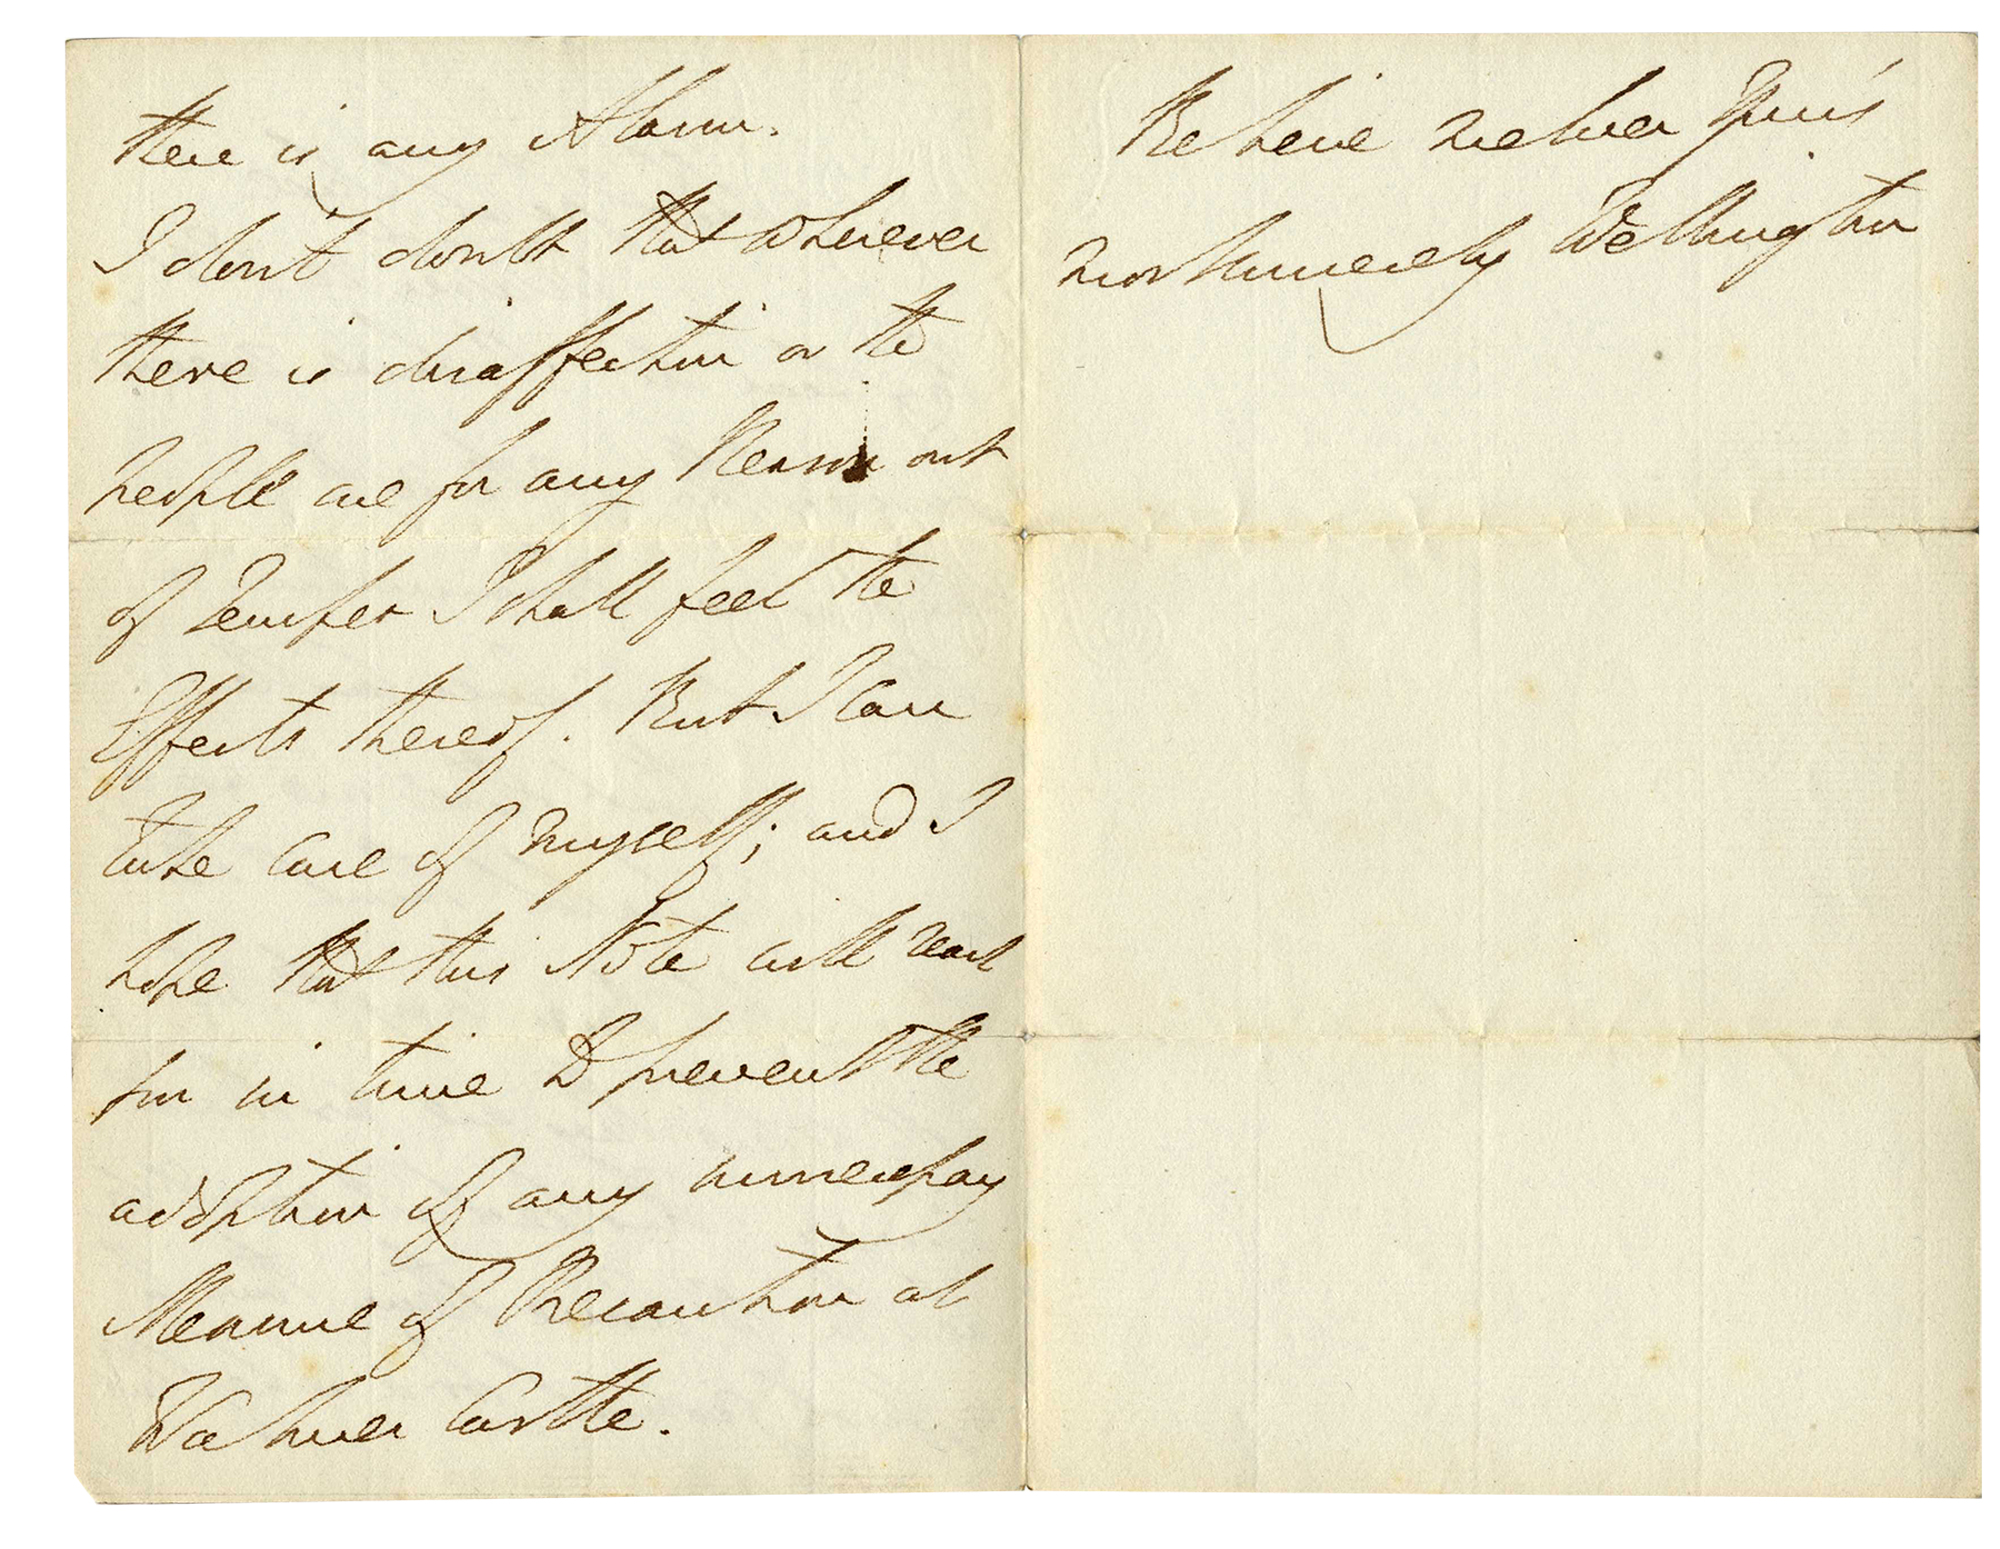 there is any Alarm.
I don't doubt that wherever
there is disaffection or the
people are for any Reason out
of Temper I shall feel the
Effects thereof. But I can
take care of myself; and I
hope that this Note will reach
you in time to prevent the
adoption of any unnecessary
Measure of Precaution at
Walmer Castle.
Believe me Ever Yours
most sincerely Wellington